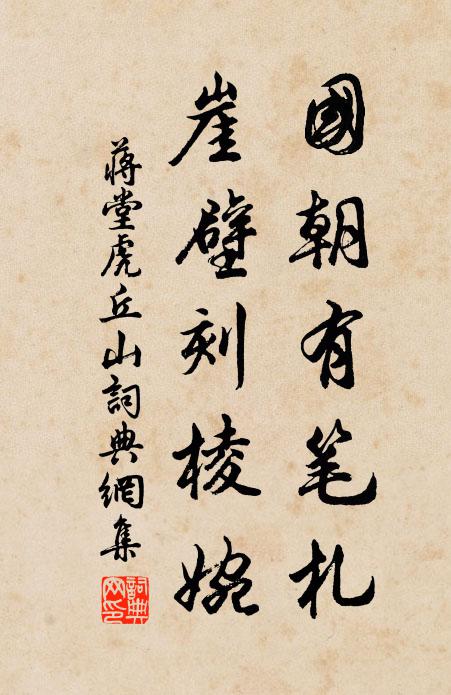 國朝有笔札
崖壁刻棱婉
蔣堂虎丘山詞典網集
詞典网印